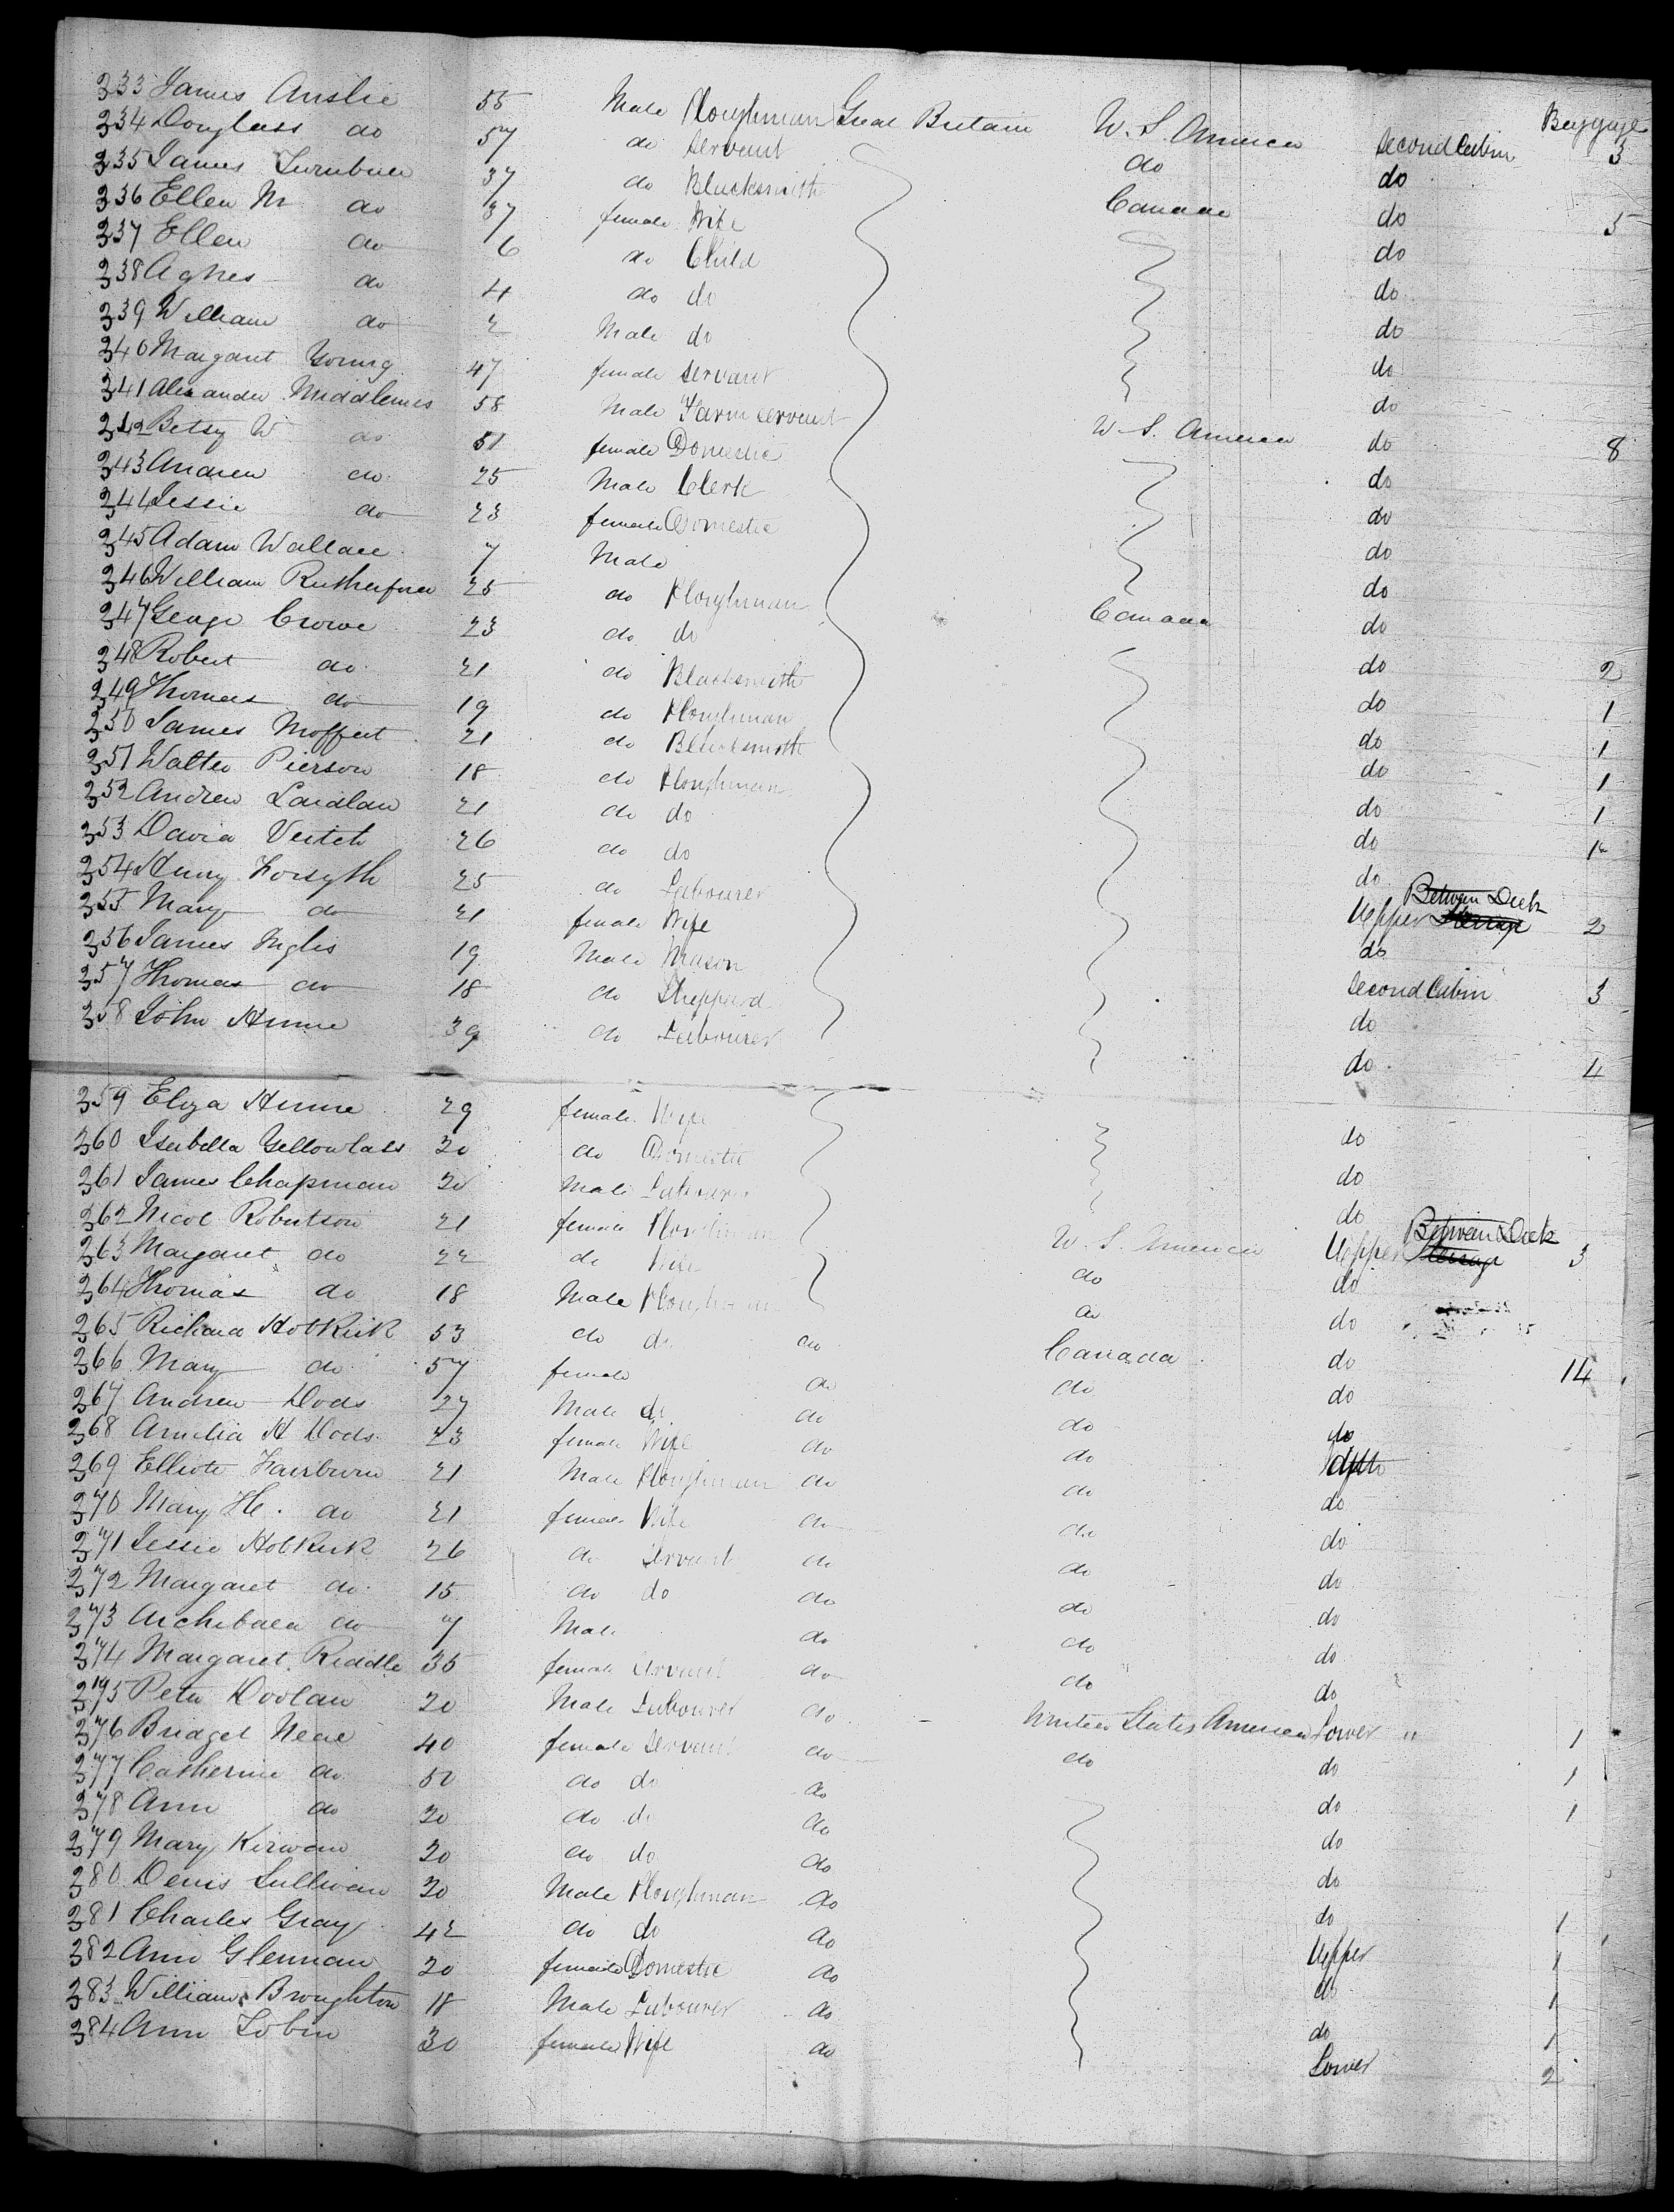 Baggage
333 James Anslie 55 Male Ploughman Great Britain U.S. America Second Cabin 3
334 Douglass do 57 do Servant do do
335 James Turnbull 37 do Blacksmith Canada do 5
336 Ellen M do 37 female Wife do
337 Ellen do 6 do Child do
338 Agnes do 4 do do do
339 William do 2 Male do do
340 Margaret Young 47 female Servant do
341 Alexander Middlemis 58 Male Farm Servant U.S. America do 8
342 Betsy W do 51 female Domestic do
343 Andrew do 25 Male Clerk do
344 Jessie do 23 female Domestic do
345 Adam Wallace 7 Male do
346 William Rutherford 25 do Ploughman Canada do
347 George Crowe 23 do do do 2
348 Robert do 21 do Blacksmith do 1
349 Thomas do 19 do Ploughman do 1
350 James Moffat 21 do Blacksmith do 1
351 Walter Pierson 18 do Ploughman do 1
352 Andrew Laidlaw 21 do do do 1
353 David Veitch 26 do do do
354 Henry Forsyth 25 do Labourer Upper Between Deck Steerage 2
355 Mary do 21 female Wife do
356 James Inglis 19 Male Mason Second Cabin 3
357 Thomas do 18 do Sheppard do
358 John Hume 39 do Labourer do 4
359 Eliza Hume 29 female Wife do
360 Isabella Yellowlass 20 do Domestic do
361 James Chapman 20 Male Labourer do
362 Nicol Robertson 21 female Ploughman U.S. America Upper Between Deck Steerage 3
363 Margaret do 22 do Wife do do
364 Thomas do 18 Male Ploughman do do
365 Richard Hobkirk 53 do do do Canada do 14
366 Mary do 57 female do do do
367 Andrew Dods 27 Male do do do do
368 Amelia H Dods 23 female Wife do do
369 Elliote Fairburn 21 Male Ploughman do do do
370 Mary H. do 21 female Wife do do do
371 Jessie Hobkirk 26 do Servant do do do
372 Margaret do 15 do do do do do
373 Archibald do 7 Male do do do
374 Margaret Riddle 35 female Servant do do do
375 Peter Doolan 20 Male Labourer do United States America Lower " 1
376 Bridget Neal 40 female Servant do do do 1
377 Catherine do 50 do do do do 1
378 Ann do 20 do do do do
379 Mary Kirwan 20 do do do do
380 Denis Sullivan 20 Male Ploughman do do 1
381 Charles Gray 42 do do do Upper 1
382 Ann Glennan 20 female Domestic do do 1
383 William Broughton 18 Male Labourer do do 1
384 Ann Tobin 30 female Wife do Lower 2